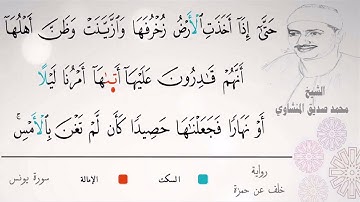 حَتَّىٰٓ إِذَآ أَخَذَتِ ٱلۡأَرۡضُ زُخۡرُفَهَا وَٱزَّيَّنَتۡ وَظَنَّ أَهۡلُهَآ
أَنَّهُمۡ قَٰدِرُونَ عَلَيۡهَآ أَتَىٰهَآ أَمۡرُنَا لَيۡلًا
أَوۡ نَهَارٗا فَجَعَلۡنَٰهَا حَصِيدٗا كَأَن لَّمۡ تَغۡنَ بِٱلۡأَمۡسِۚ
الشيخ
محمد صديق المنشاوي
رواية
خلف عن حمزة
السكت
الإمالة
سورة يونس